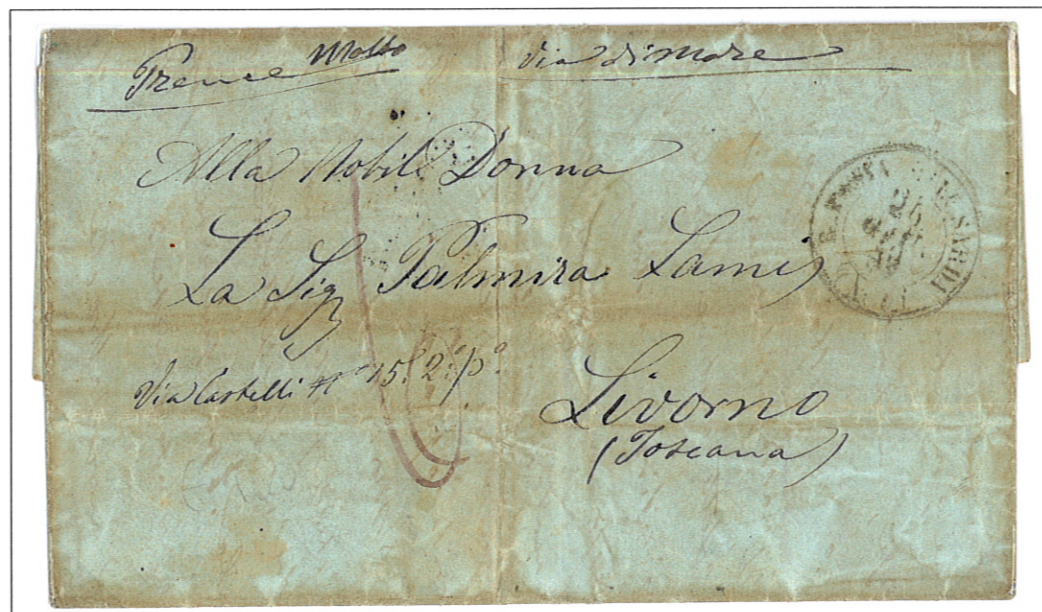 Preme Molto Via di mare
Alla Nobil Donna
La Sig Palmira Lami
Via Castelli n° 15. 2° p°
Livorno
(Toscana)
POSTA SARDA